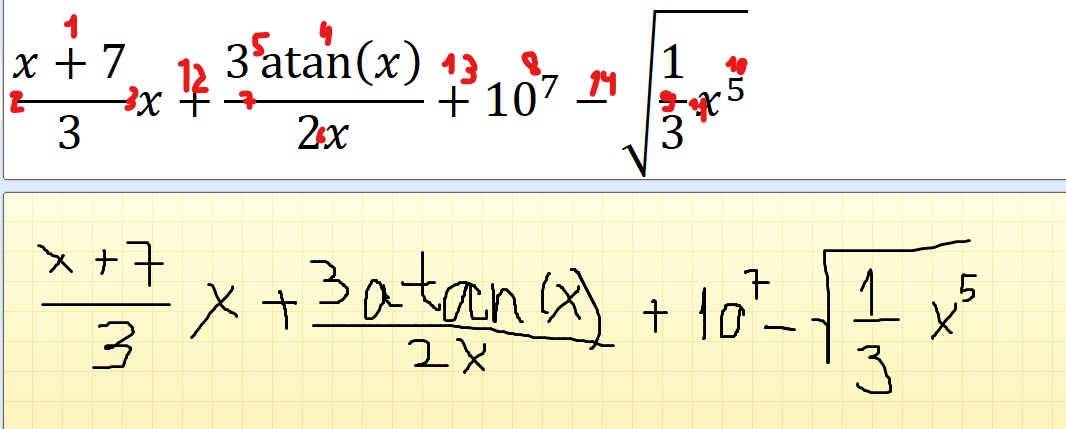 (x + 7)/3 x + (3 atan(x))/(2x) + 10⁷ − √(1/3 x⁵)
1 2 3 12 5 4 7 6 13 8 14 9 11 10
(x + 7)/3 x + (3 atan(x))/(2x) + 10⁷ − √(1/3 x⁵)